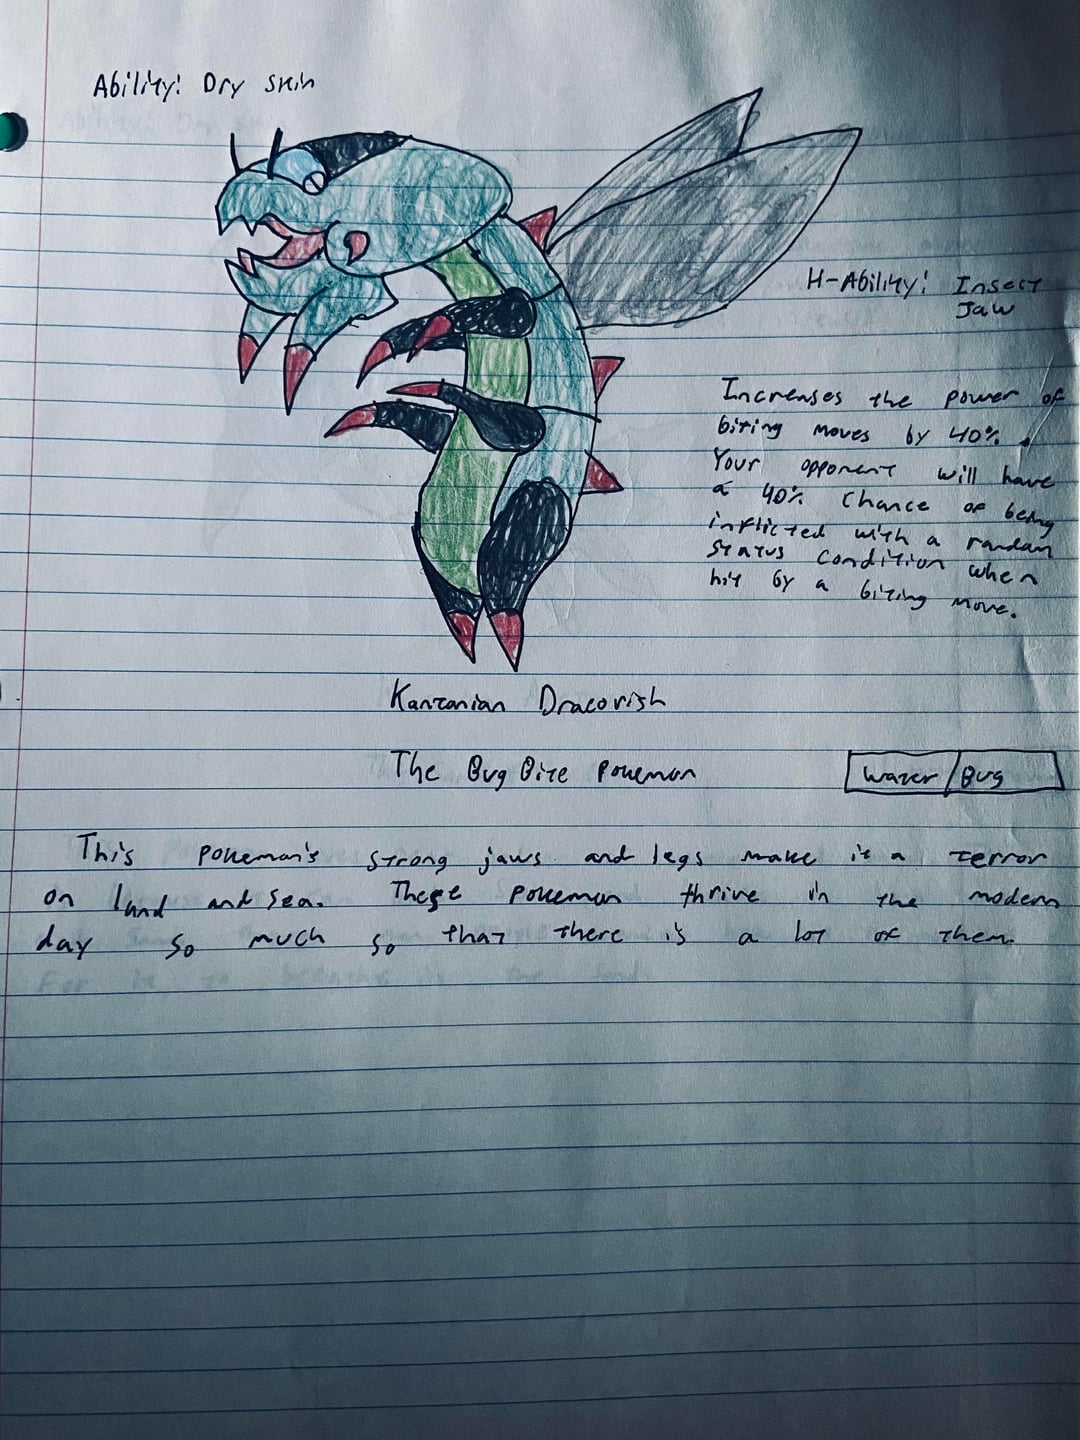 Ability: Dry skin
H-Ability: Insect
Jaw
Increases the power of
biting moves by 40%.
Your opponent will have
a 40% chance of being
inflicted with a random
status condition when
hit by a biting move.
Kantonian Dracovish
The Bug Bite Pokemon
Water/Bug
This pokemon's strong jaws and legs make it a terror
on land and sea. These pokemon thrive in the modern
day so much so that there is a lot of them.